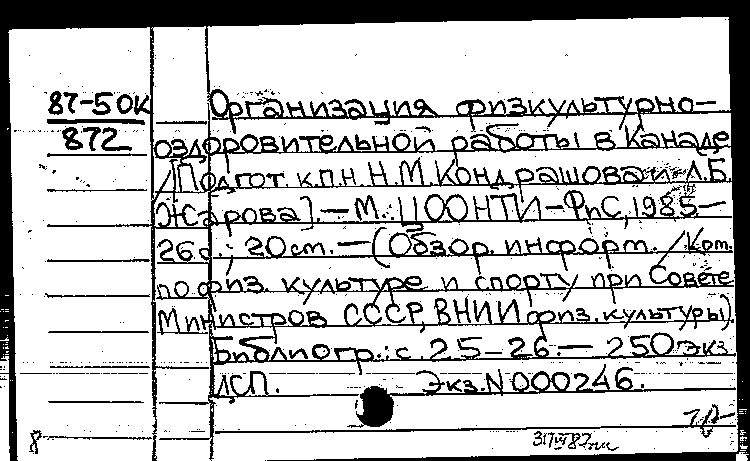 87-5 ОК
872
Организация физкультурно-
оздоровительной работы в Канаде
/[Подгот. к.п.н. Н.М. Кондрашова и Л.Б.
Жарова]. — М.: ЦООНТИ-ФиС, 1985 —
26 с.; 20 см. — (Обзор. информ. / Ком.
по физ. культуре и спорту при Совете
Министров СССР, ВНИИ физ. культуры).
Библиогр.: с. 25-26. — 250 экз.
ДСП. Экз. N 000246.
8